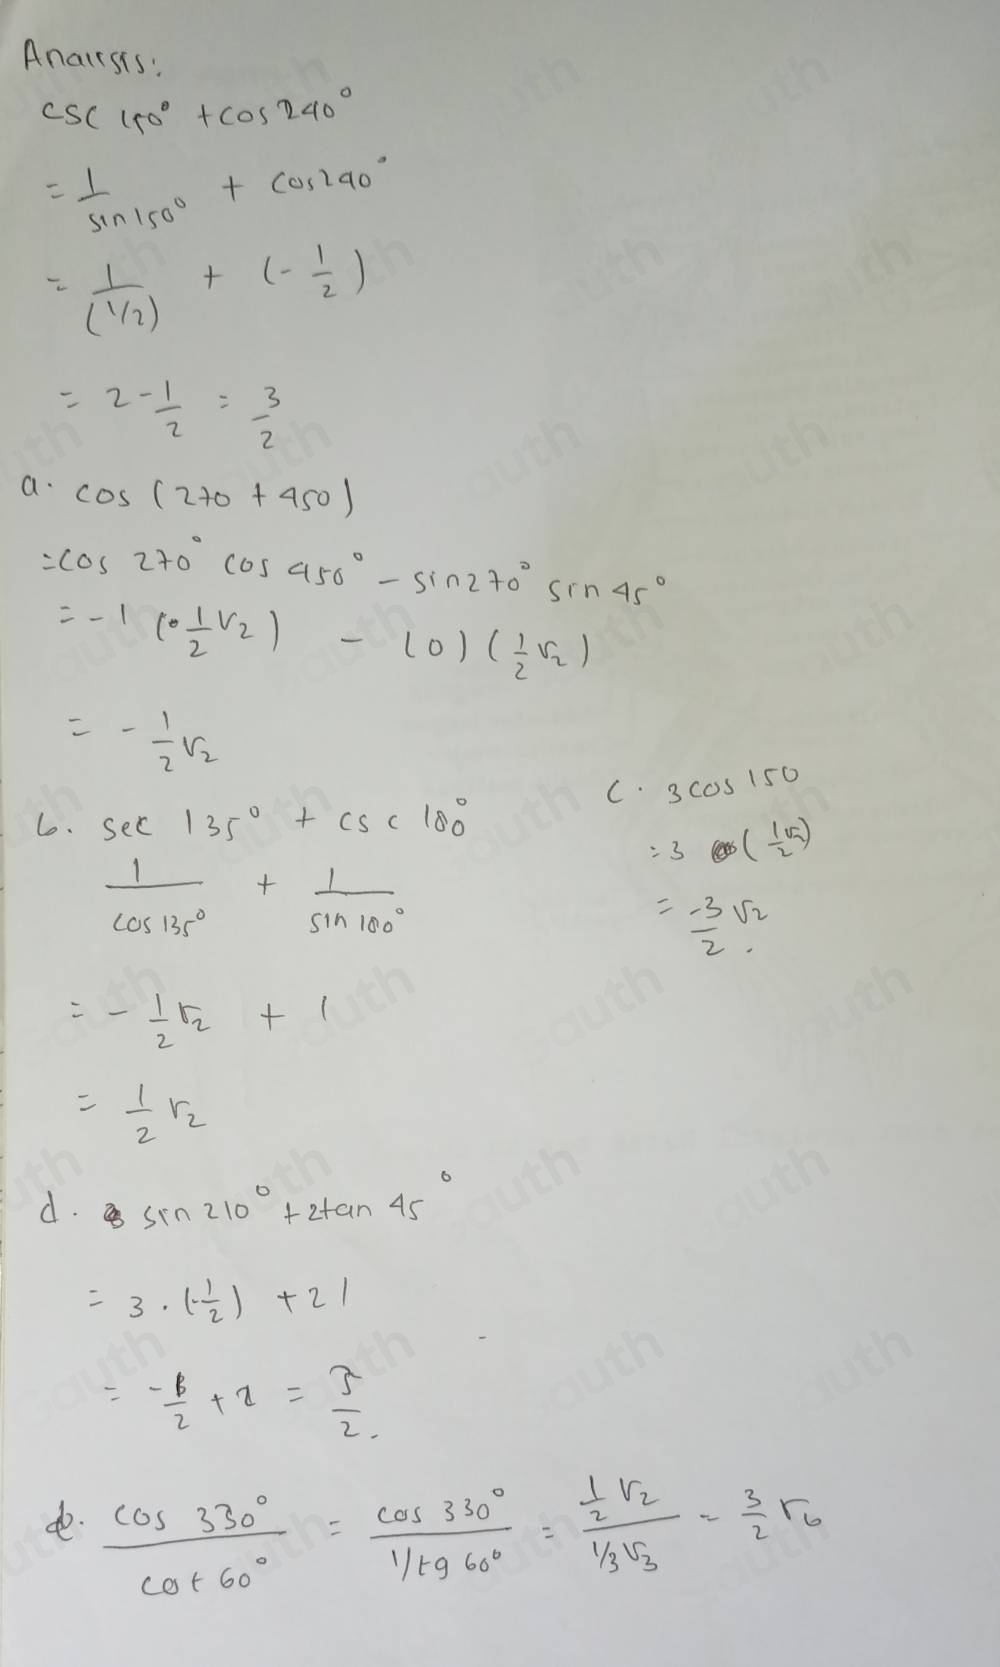 Anaersrs:
csc 150° + cos 240°
= 1/sin 150° + cos 240°
= 1/(1/2) + (- 1/2)
= 2 - 1/2 = 3/2
a. cos (270 + 450)
= cos 270° cos 450° - sin 270° sin 45°
= -1 (1/2 √2) - (0) (1/2 √2)
= - 1/2 √2
b. sec 135° + csc 180°
1/cos 135° + 1/sin 180°
= - 1/2 √2 + 1
= 1/2 √2
c. 3 cos 150
= 3 (1/2 √2)
= -3/2 √2.
d. sin 210° + 2tan 45°
= 3 . (-1/2) + 2 1
= -3/2 + 2 = 5/2.
e. cos 330°/cot 60° = cos 330°/1/tg 60° = 1/2 √2/1/3 √3 = 3/2 √6